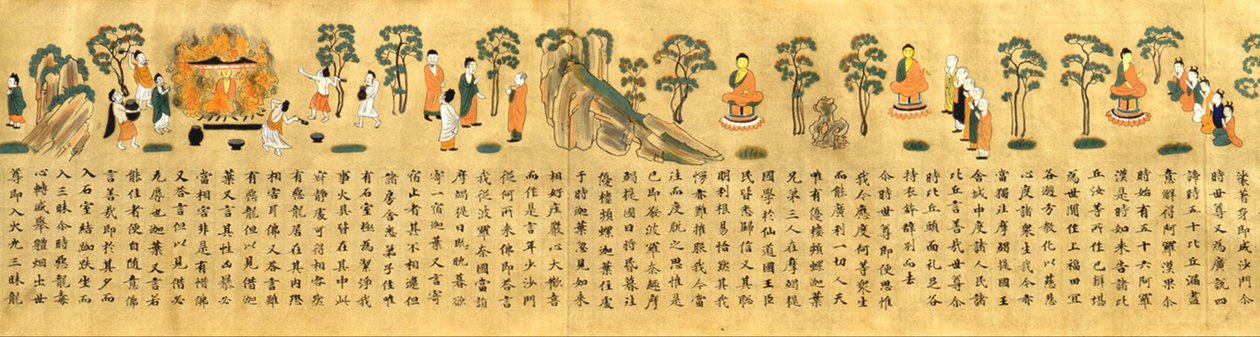 裟著身即成沙門尒
時世尊又為廣說四
諦時五十比丘漏盡
意解得阿羅漢果尒
時始有五十六阿羅
漢是時如来告諸比
丘汝等所作已辦堪
為世閒作上福田宜
各遊方教化以慈悲
心度諸衆生我今亦
當獨往摩竭提國王
舍城中度諸人民諸
比丘言善哉世尊尒
時比丘頭面礼足各
持衣鉢辞別而去
尒時世尊即便思惟
我今應度何等衆生
而能廣利一切人天
唯有優樓頻螺迦葉
兄弟三人在摩竭提
國學於仙道國王臣
民皆悉歸信又其聡
明利根易悟然其我
慢亦難摧服我今當
往而度脫之思惟是
已即發波羅奈趣摩
竭提國日将昏暮往
優樓頻螺迦葉住處
于時迦葉忽見如来
相好庄嚴心大歡喜
而作是言年少沙門
從何所来佛即荅言
我從波羅奈國當詣
摩竭提日既晩暮欲
寄一宿迦葉又言寄
宿止者甚不相違但
諸房舍悉弟子住唯
有石室極為潔淨我
事火具皆在其中此
寂静處可得相容然
有惡龍居在其内恐
相害耳佛又荅言雖
有惡龍但以見借迦
葉又言其性凶暴必
當相害非是有惜佛
又荅言但以見借必
无辱也迦葉又言若
能住者便自随意佛
言善哉即於其夕而
入石室結跏趺坐而
入三昧尒時惡龍毒
心轉盛擧體烟出世
尊即入火光三昧龍